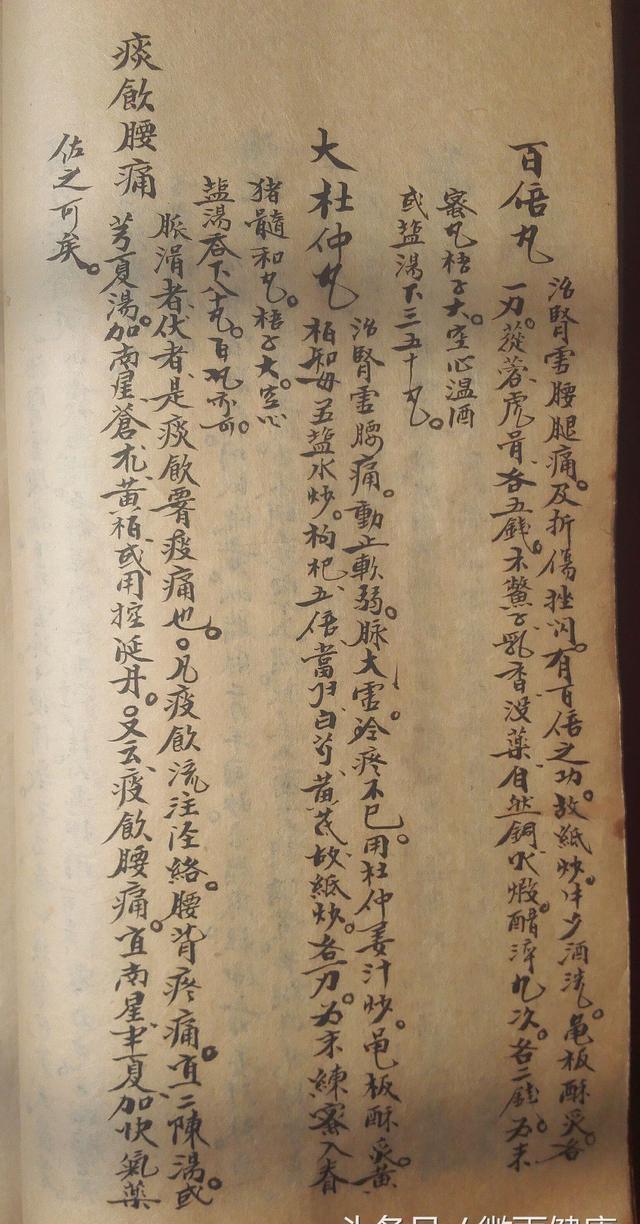 百倍丸
治腎虛腰腿痛。及折傷挫閃。有百倍之功。故紙炒。牛夕酒洗。龜板酥炙。各
一刄。蓯蓉虎骨各五錢。木鱉子乳香没藥自然銅火煅醋淬九次。各二錢。为末
蜜丸梧子大。空心温酒
或盐湯下三五十丸。
大杜仲丸
治腎虛腰痛。動止軟弱。脉大虛。冷疼不已。用杜仲姜汁炒。龟板酥炙。黄
柏知母並盐水炒。枸杞五倍當归白芍黄芪故紙炒。各一刄。为末練蜜入脊
猪髓和丸。梧子大。空心
盐湯吞下八十丸。百丸亦可。
痰飲腰痛
脈滑者伏者是痰飲腎痠痛也。凡痰飲流注泾絡。腰背疼痛。宜二陳湯或
芎夏湯。加南星蒼术黄柏或用控涎丹。又云痰飲腰痛。宜南星半夏加快氣藥
佐之可矣。